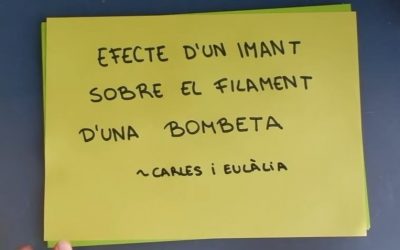 EFECTE D'UN IMANT
SOBRE EL FILAMENT
D'UNA BOMBETA
~CARLES i EULÀLIA